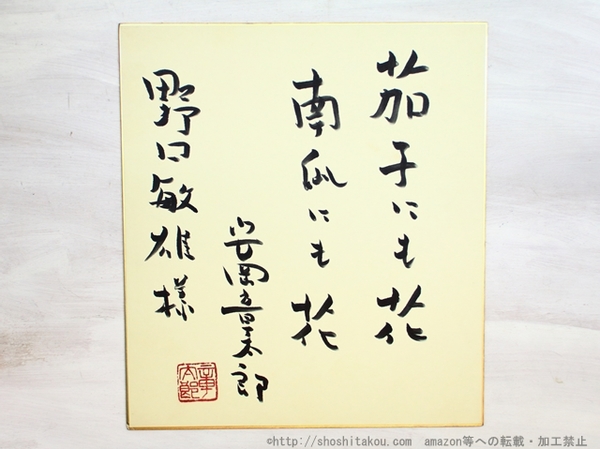 茄子にも花
南瓜にも花
安岡章太郎
野口敏雄様
章太郎
©http://shoshitakou.com amazon等への転載・加工禁止